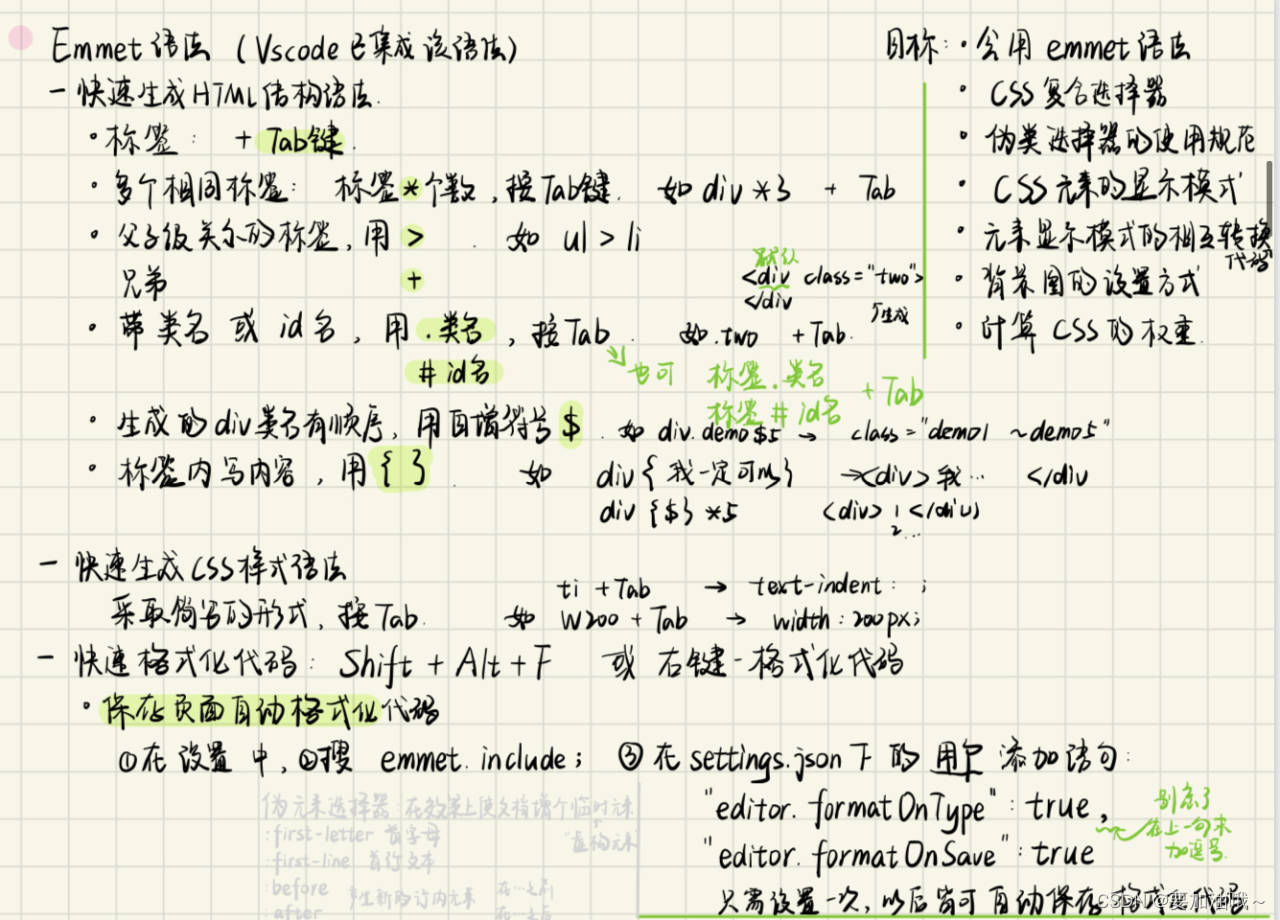 Emmet 语法 (Vscode 已集成该语法)
一 快速生成HTML结构语法.
· 标签: + Tab键.
· 多个相同标签: 标签*个数,按Tab键. 如 div *3 + Tab
· 父子级关系的标签,用 > . 如 ul > li
兄弟 +
默认
<div class="two">
</div
生成
· 带类名 或 id名,用 .类名, 按Tab. 如 .two + Tab.
# id名
也可 标签.类名 + Tab
标签 # id名
· 生成的div类名有顺序,用自增符号 $ . 如 div.demo$5 → class="demo1 ~demo5"
· 标签内写内容,用 { } . 如 div { 我一定可以} → <div> 我… </div
div {$} *5 <div> 1 </div)
2…
目标: · 会用 emmet 语法
· CSS 复合选择器
· 伪类选择器的使用规范
· CSS 元素的显示模式
· 元素显示模式的相互转换
代码
· 背景图的设置方式
· 计算 CSS 的权重.
一 快速生成CSS样式语法
ti + Tab → text-indent: ;
采取简写的形式,按Tab. 如 W200 + Tab → width:200px;
一 快速格式化代码: Shift + Alt + F 或 右键-格式化代码
· 保存页面自动格式化代码
①在 设置 中,②搜 emmet.include; ③在 settings.json 下 的 用户 添加语句:
"editor.formatOnType": true,
"editor.formatOnSave": true
别忘了
在上一句末
加逗号.
只需设置一次,以后皆可自动保存格式化代码
伪元素选择器:在效果上使文档增个临时元素
:first-letter 首字母
"虚构元素"
:first-line 首行文本
:before
:after
CSDN @要加油哦~